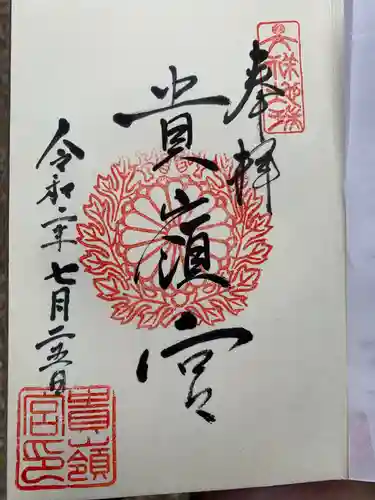 奉拝
貴嶺宮
令和二年七月二十五日
貴嶺宮印